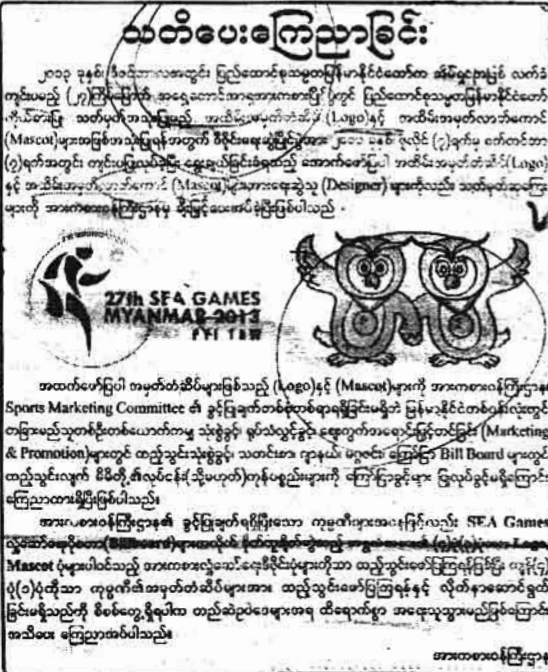 သတိပေးကြေညာခြင်း
၂၀၁၃ ခုနှစ်၊ ဒီဇင်ဘာလအတွင်း ပြည်ထောင်စုသမ္မတမြန်မာနိုင်ငံတော်က အိမ်ရှင်အဖြစ် လက်ခံ
ကျင်းပမည့် (၂၇)ကြိမ်မြောက် အရှေ့တောင်အာရှအားကစားပြိုင်ပွဲတွင် ပြည်ထောင်စုသမ္မတမြန်မာနိုင်ငံတော်
ကိုယ်စားပြု သတ်မှတ်အသုံးပြုမည့် အထိမ်းအမှတ်တံဆိပ် (Logo)နှင့် အထိမ်းအမှတ်လာဘ်ကောင်
(Mascot)များအဖြစ်အသုံးပြုရန်အတွက် ဇူလိုင် (၇)ရက်မှ စက်တင်ဘာ
(၇)ရက်အတွင်း ကျင်းပပြုလုပ်ခဲ့ပြီး ရွေးချယ်ခြင်းခံရသည့် အောက်ဖော်ပြပါ အထိမ်းအမှတ်တံဆိပ်(Logo)
နှင့် အထိမ်းအမှတ်လာဘ်ကောင် (Mascot)များအားရေးဆွဲသူ (Designer) များကိုလည်း သတ်မှတ်ဆုကြေး
များကို အားကစားဝန်ကြီးဌာနမှ ချီးမြှင့်ပေးအပ်ခဲ့ပြီးဖြစ်ပါသည် -
27th SEA GAMES
MYANMAR 2013
အထက်ဖော်ပြပါ အမှတ်တံဆိပ်များဖြစ်သည့် (Logo)နှင့် (Mascot)များကို အားကစားဝန်ကြီးဌာန၊
Sports Marketing Committee ၏ ခွင့်ပြုချက်တစ်စုံတစ်ရာရရှိခြင်းမရှိဘဲ မြန်မာနိုင်ငံတစ်ဝှမ်းလုံးတွင်
တခြားမည်သူတစ်ဦးတစ်ယောက်ကမျှ သုံးစွဲခွင့်၊ ရုပ်သံလွှင့်ခွင့်၊ ဈေးကွက်အရောင်းမြှင့်တင်ခြင်း (Marketing
& Promotion)များတွင် ထည့်သွင်းသုံးစွဲခွင့်၊ သတင်းစာ၊ ဂျာနယ်၊ မဂ္ဂဇင်း၊ ကြော်ငြာ Bill Board များတွင်
ထည့်သွင်းလျက် မိမိတို့၏လုပ်ငန်း(သို့မဟုတ်)ကုန်ပစ္စည်းများကို ကြော်ငြာခွင့်များ ပြုလုပ်ခွင့်မရှိကြောင်း
ကြေညာထားရှိပြီးဖြစ်ပါသည်။
အားကစားဝန်ကြီးဌာန၏ ခွင့်ပြုချက်ရရှိပြီးသော ကုမ္ပဏီများအနေဖြင့်လည်း SEA Games
Mascot ပုံများပါဝင်သည့် အားကစားလှုံ့ဆော်ရေးဒီဇိုင်းပုံများကိုသာ ထည့်သွင်းဖော်ပြကြရန်ဖြစ်ပြီး ကျန်(၄)
ပုံ(၁)ပုံကိုသာ ကုမ္ပဏီ၏အမှတ်တံဆိပ်များအား ထည့်သွင်းဖော်ပြကြရန်နှင့် လိုက်နာဆောင်ရွက်
ခြင်းမရှိသည်ကို စိစစ်တွေ့ရှိရပါက တည်ဆဲဥပဒေများအရ ထိရောက်စွာ အရေးယူသွားမည်ဖြစ်ကြောင်း
အသိပေး ကြေညာအပ်ပါသည်။
အားကစားဝန်ကြီးဌာန